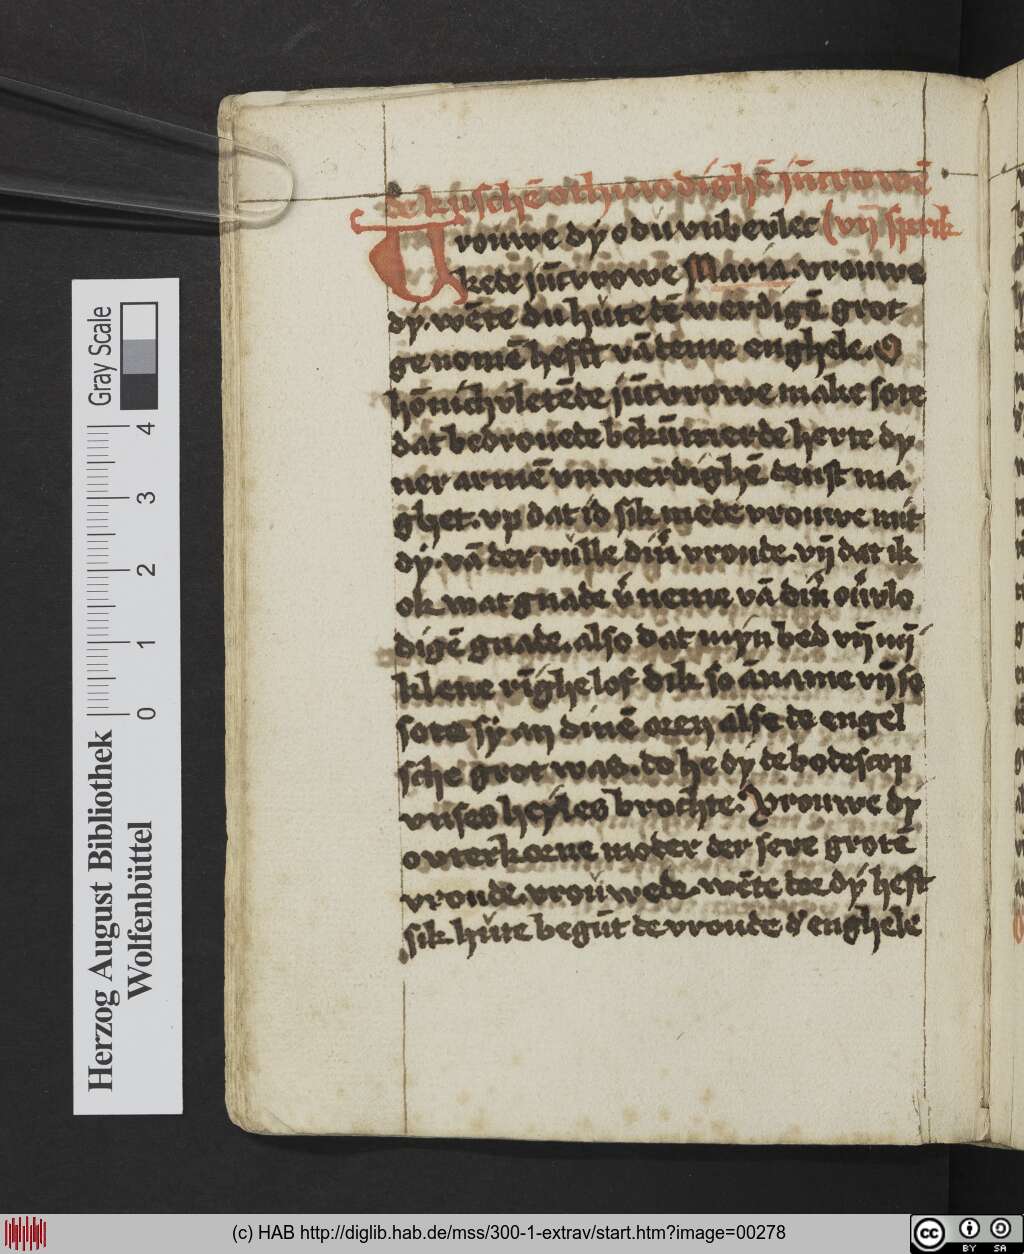 de kuschē othmodighē jūcvrowē
Vrouwe dy o du vnbevlec (vn̄ sprik
kede jūcvrowe Maria. vrouwe
dy. wēte du hute dē werdigē grot
ge nomē hefft vā deme enghele. O
hōnich vletēde jūcvrowe make sote
dat bedrouede bekūmerde herte dy
ner armē vnwerdighē denst ma
ghet. vp dat id sik mede vrouwe mit
dy. vā der vulle dīn vroude. vn̄ dat ik
ok wat gnade v̄neme vā din̄ ouvlo
digē gnade. also dat myn bed vn̄ mȳ
klene rīghe lof dik so āname vn̄ so
sote sy an dinē oren alse de engel
sche grot was. do he dy de bodescop
vnses heyles brochte. Vrouwe dy
o vterkorne moder der sere grotē
vroude. vrouwede. wēte doe dy heft
sik hute begūt de vroude d' enghele
Herzog August Bibliothek
Wolfenbüttel
Gray Scale
0 1 2 3 4
(c) HAB http://diglib.hab.de/mss/300-1-extrav/start.htm?image=00278
cc BY SA